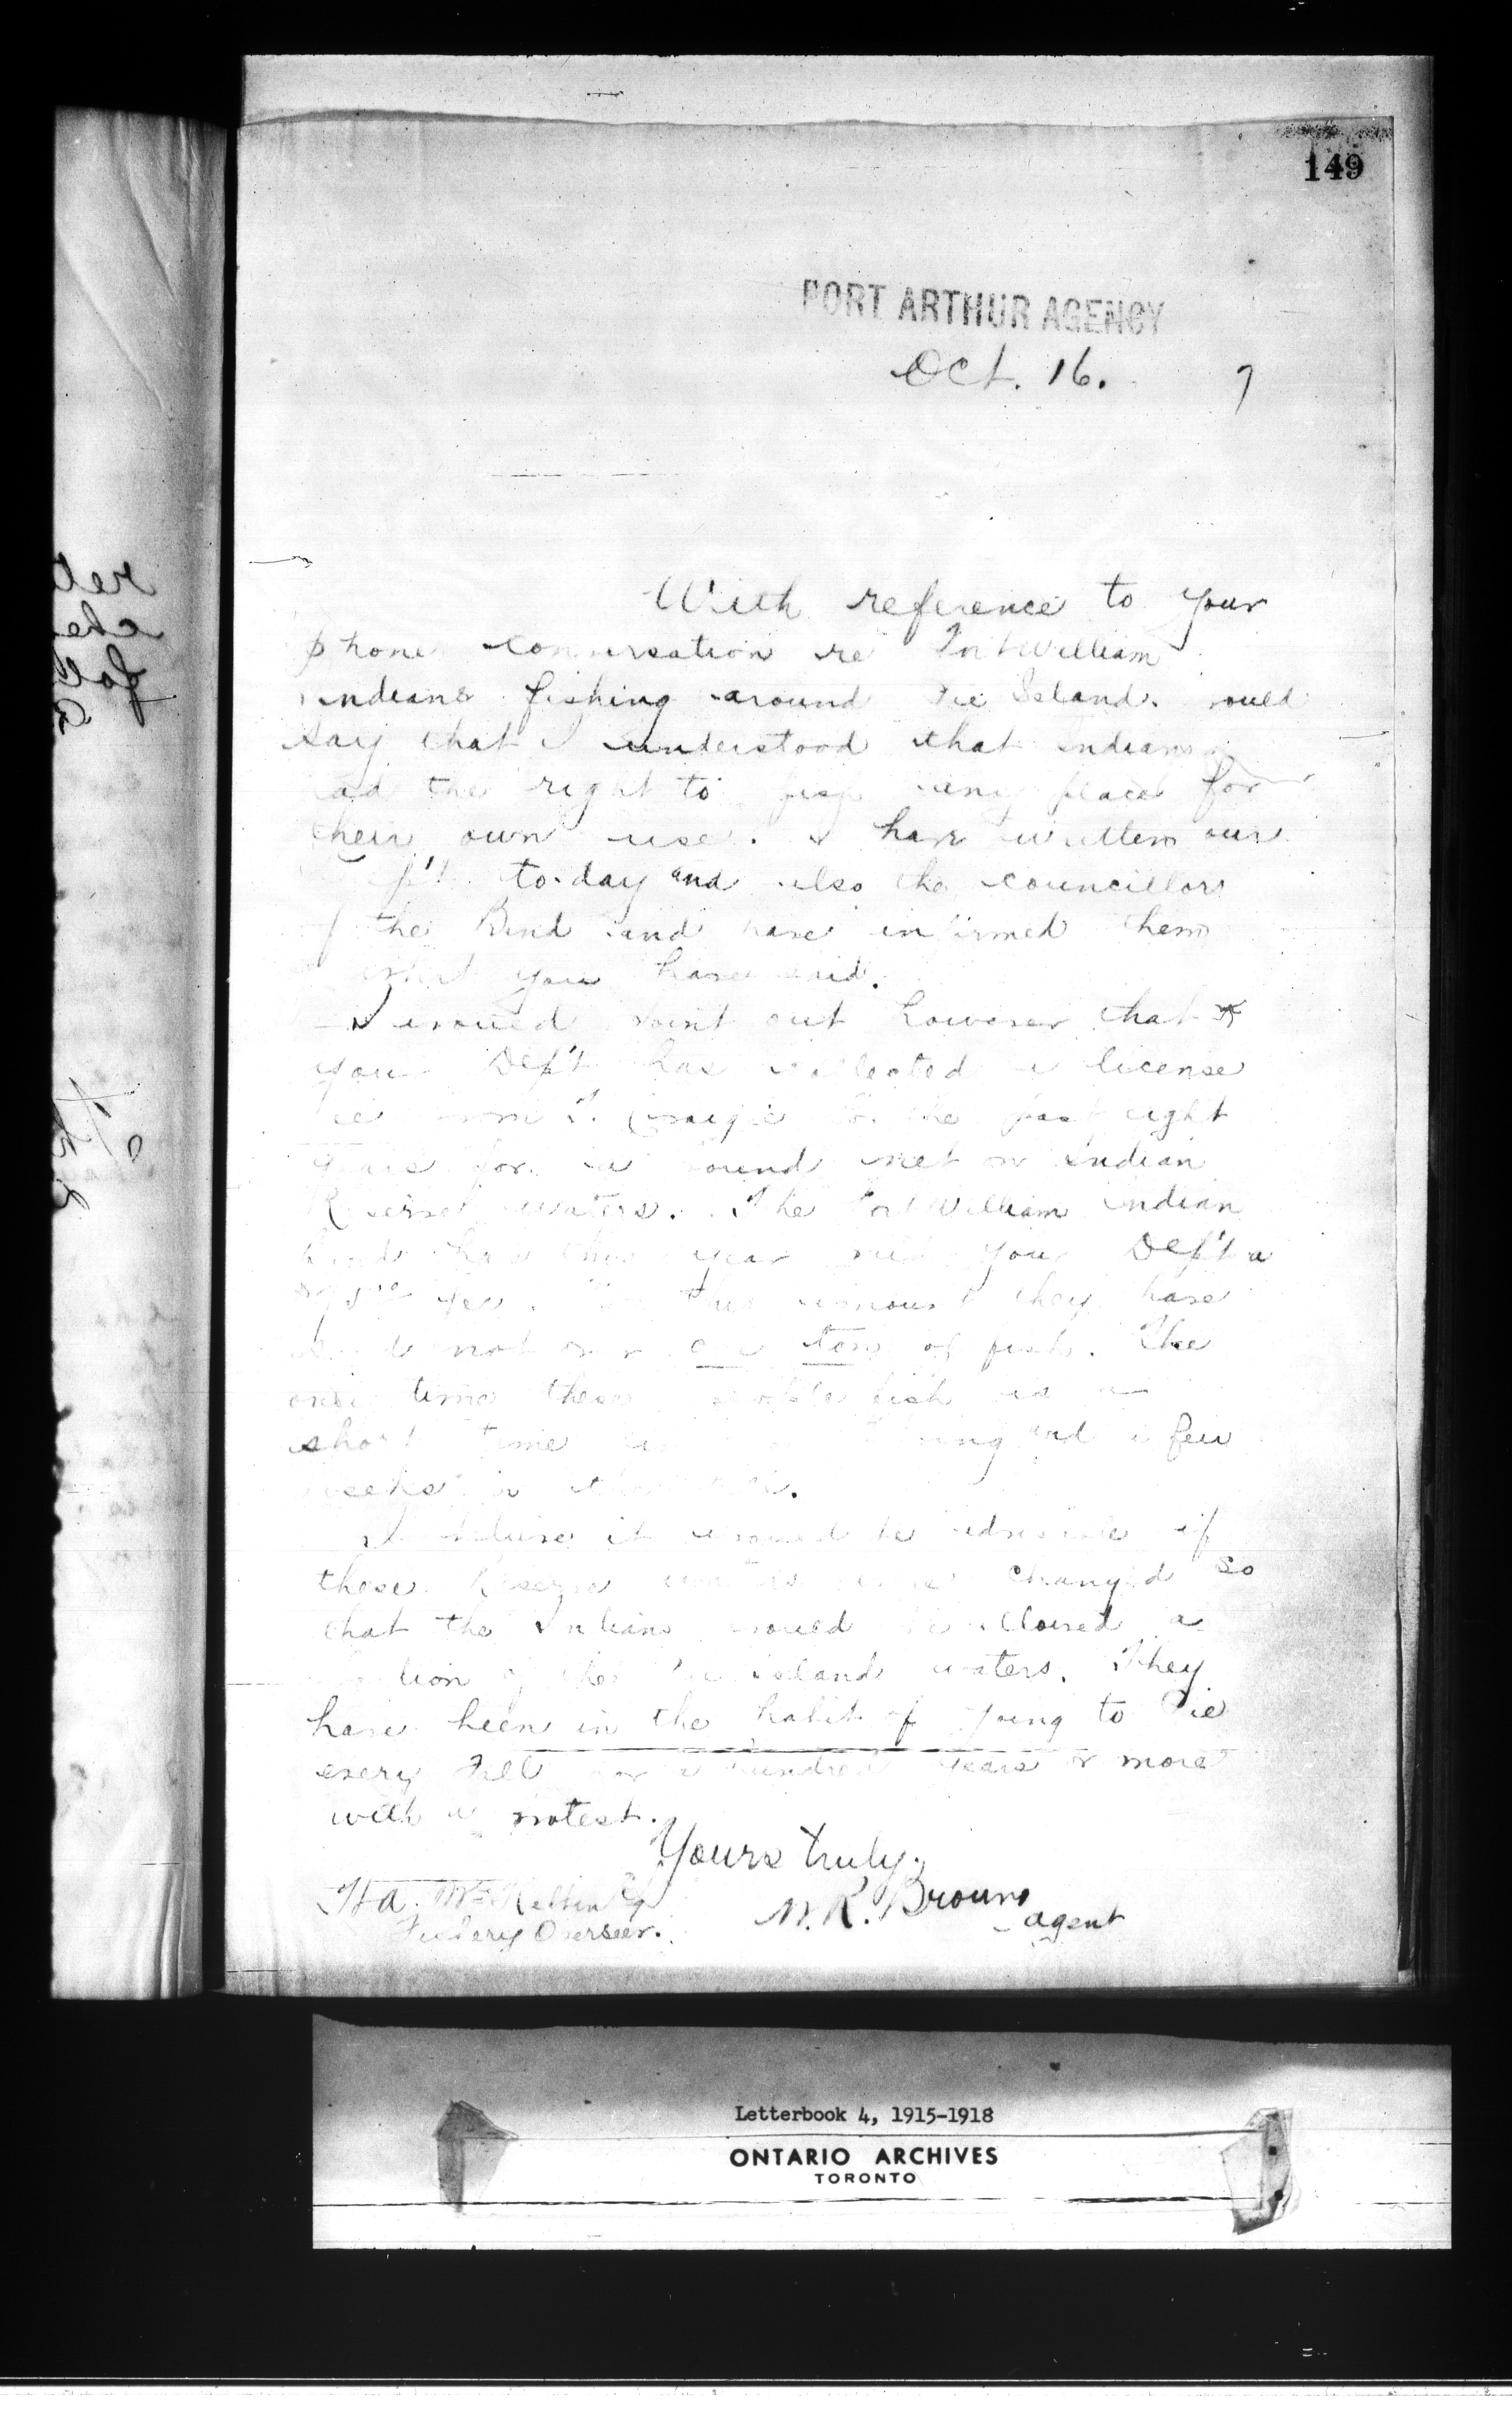 149
PORT ARTHUR AGENCY
Oct. 16. 7
With reference to your
phone conversation re Fort William
Indians fishing around Pie Island. would
say that I understood that Indians
had the right to fish any place for
their own use. I have written our
Dep't to-day and also the councillors
of the Band and have informed them
what you have said.
I would point out however that
your Dep't has collected a license
fee from T. Craigie for the past eight
years for a pound net on Indian
Reserve waters. The Fort William Indian
Band has this year your Dep't a
fee. For this amount they have
not over one ton of fish. The
only time these people fish is a
short time in spring and a few
weeks in the fall.
I believe it would be advisable if
these Reserve waters were changed so
that the Indians would be allowed a
portion of the Pie Island waters. They
have been in the habit of going to Pie
every Fall for a hundred years or more
with a protest.
Yours truly,
W. R. Brown
agent
Fishery Overseer.
Letterbook 4, 1915-1918
ONTARIO ARCHIVES
TORONTO